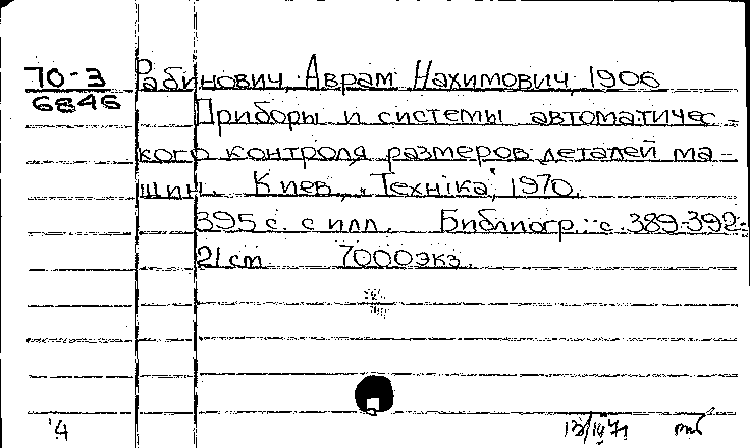 70-3 Рабинович, Аврам Нахимович, 1906
6846
Приборы и системы автоматичес-
кого контроля размеров деталей ма-
шин. Киев, „Техніка", 1970.
395 с. с илл. Библиогр.: с. 389-392.
21 cm 7000 экз.
4